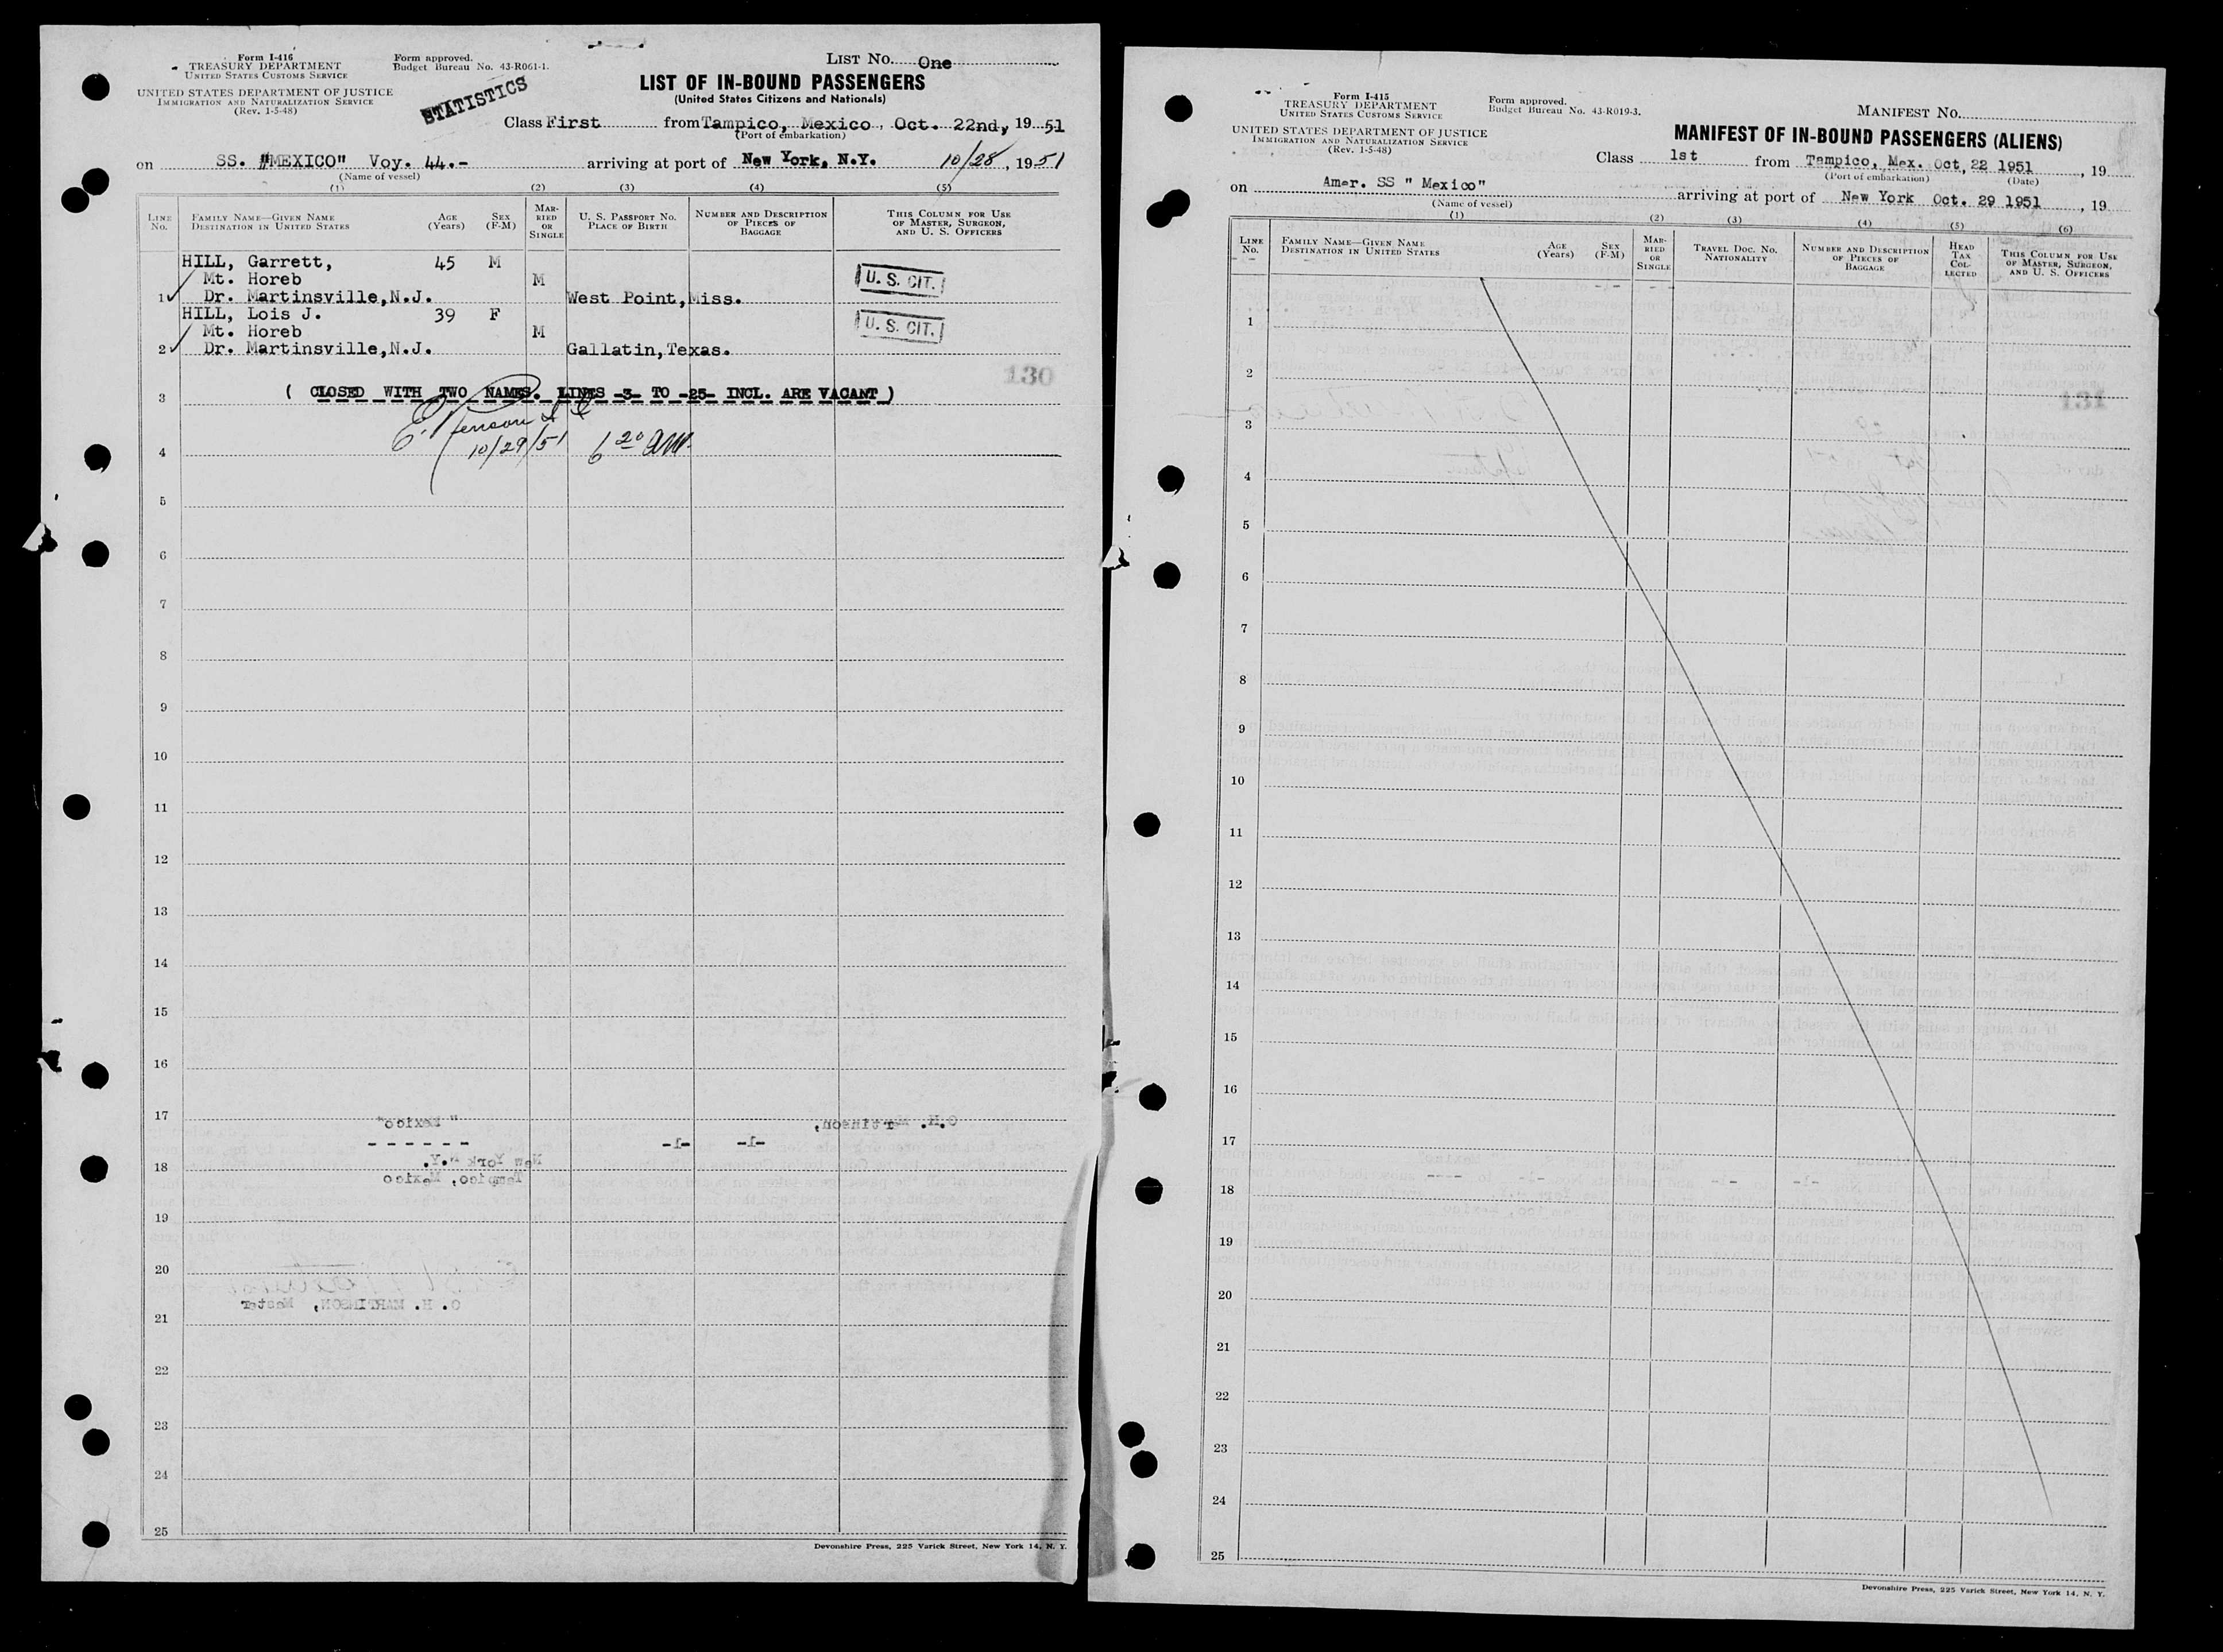 Form I-416
TREASURY DEPARTMENT
UNITED STATES CUSTOMS SERVICE
UNITED STATES DEPARTMENT OF JUSTICE
IMMIGRATION AND NATURALIZATION SERVICE
(Rev. 1-5-48)
Form approved.
Budget Bureau No. 43-R061-1.
STATISTICS
LIST No. One
LIST OF IN-BOUND PASSENGERS
(United States Citizens and Nationals)
Class First from Tampico, Mexico, Oct. 22nd, 1951
(Port of embarkation)
on SS. "MEXICO" Voy. 44.- arriving at port of New York, N.Y. 10/28, 1951
(Name of vessel)
(1) (2) (3) (4) (5)
LINE No. FAMILY NAME—GIVEN NAME DESTINATION IN UNITED STATES AGE (Years) SEX (F-M) MARRIED OR SINGLE U. S. PASSPORT No. PLACE OF BIRTH NUMBER AND DESCRIPTION OF PIECES OF BAGGAGE THIS COLUMN FOR USE OF MASTER, SURGEON, AND U. S. OFFICERS
HILL, Garrett, 45 M
Mt. Horeb M U. S. CIT.
1 Dr. Martinsville,N.J. West Point,Miss.
HILL, Lois J. 39 F
Mt. Horeb M U. S. CIT.
2 Dr. Martinsville,N.J. Gallatin,Texas.
130
3 ( CLOSED WITH TWO NAMES. LINES -3- TO -25- INCL. ARE VACANT )
4 10/29/51 6 20 AM.
5
6
7
8
9
10
11
12
13
14
15
16
17
18
19
20
21
22
23
24
25
"Mexico" O.H. Martinson,
- - - - - - -1- -1-
New York N.Y.
Tampico, Mexico
O. H. MARTINSON, Master
Devonshire Press, 225 Varick Street, New York 14, N. Y.
Form I-415
TREASURY DEPARTMENT
UNITED STATES CUSTOMS SERVICE
UNITED STATES DEPARTMENT OF JUSTICE
IMMIGRATION AND NATURALIZATION SERVICE
(Rev. 1-5-48)
Form approved.
Budget Bureau No. 43-R019-3.
MANIFEST No.
MANIFEST OF IN-BOUND PASSENGERS (ALIENS)
Class 1st from Tampico, Mex. Oct, 22 1951, 19
(Port of embarkation) (Date)
on Amer. SS " Mexico" arriving at port of New York Oct. 29 1951, 19
(Name of vessel)
(1) (2) (3) (4) (5) (6)
LINE No. FAMILY NAME—GIVEN NAME DESTINATION IN UNITED STATES AGE (Years) SEX (F-M) MARRIED OR SINGLE TRAVEL DOC. No. NATIONALITY NUMBER AND DESCRIPTION OF PIECES OF BAGGAGE HEAD TAX COLLECTED THIS COLUMN FOR USE OF MASTER, SURGEON, AND U. S. OFFICERS
1
2
131
3
4
5
6
7
8
9
10
11
12
13
14
15
16
17
18
19
20
21
22
23
24
25
Devonshire Press, 225 Varick Street, New York 14, N. Y.